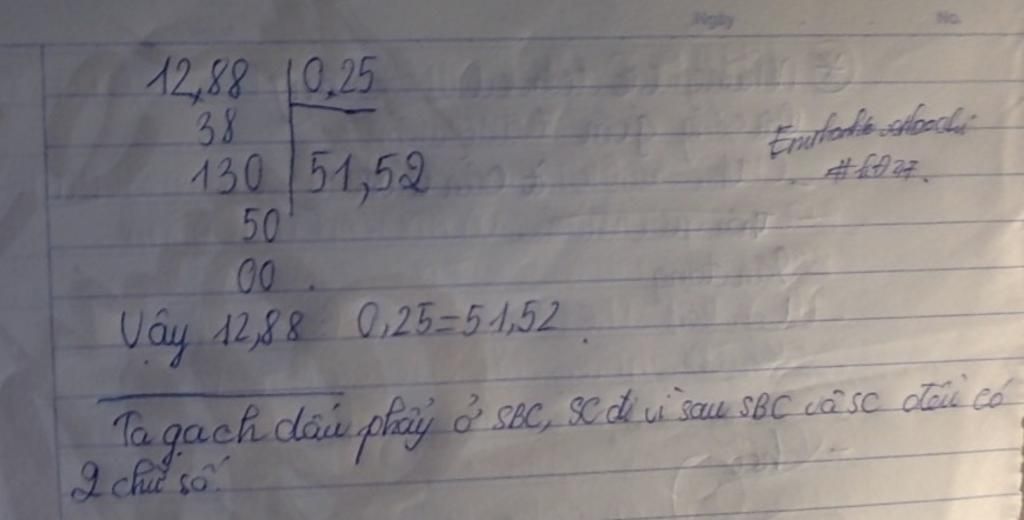 Ngày No.
12,88 0,25
38
130 51,52
50
00 .
Vậy 12,88 0,25=51,52 .
Ta gạch dấu phẩy ở SBC, SC đi vì sau SBC và SC đều có
2 chữ số.